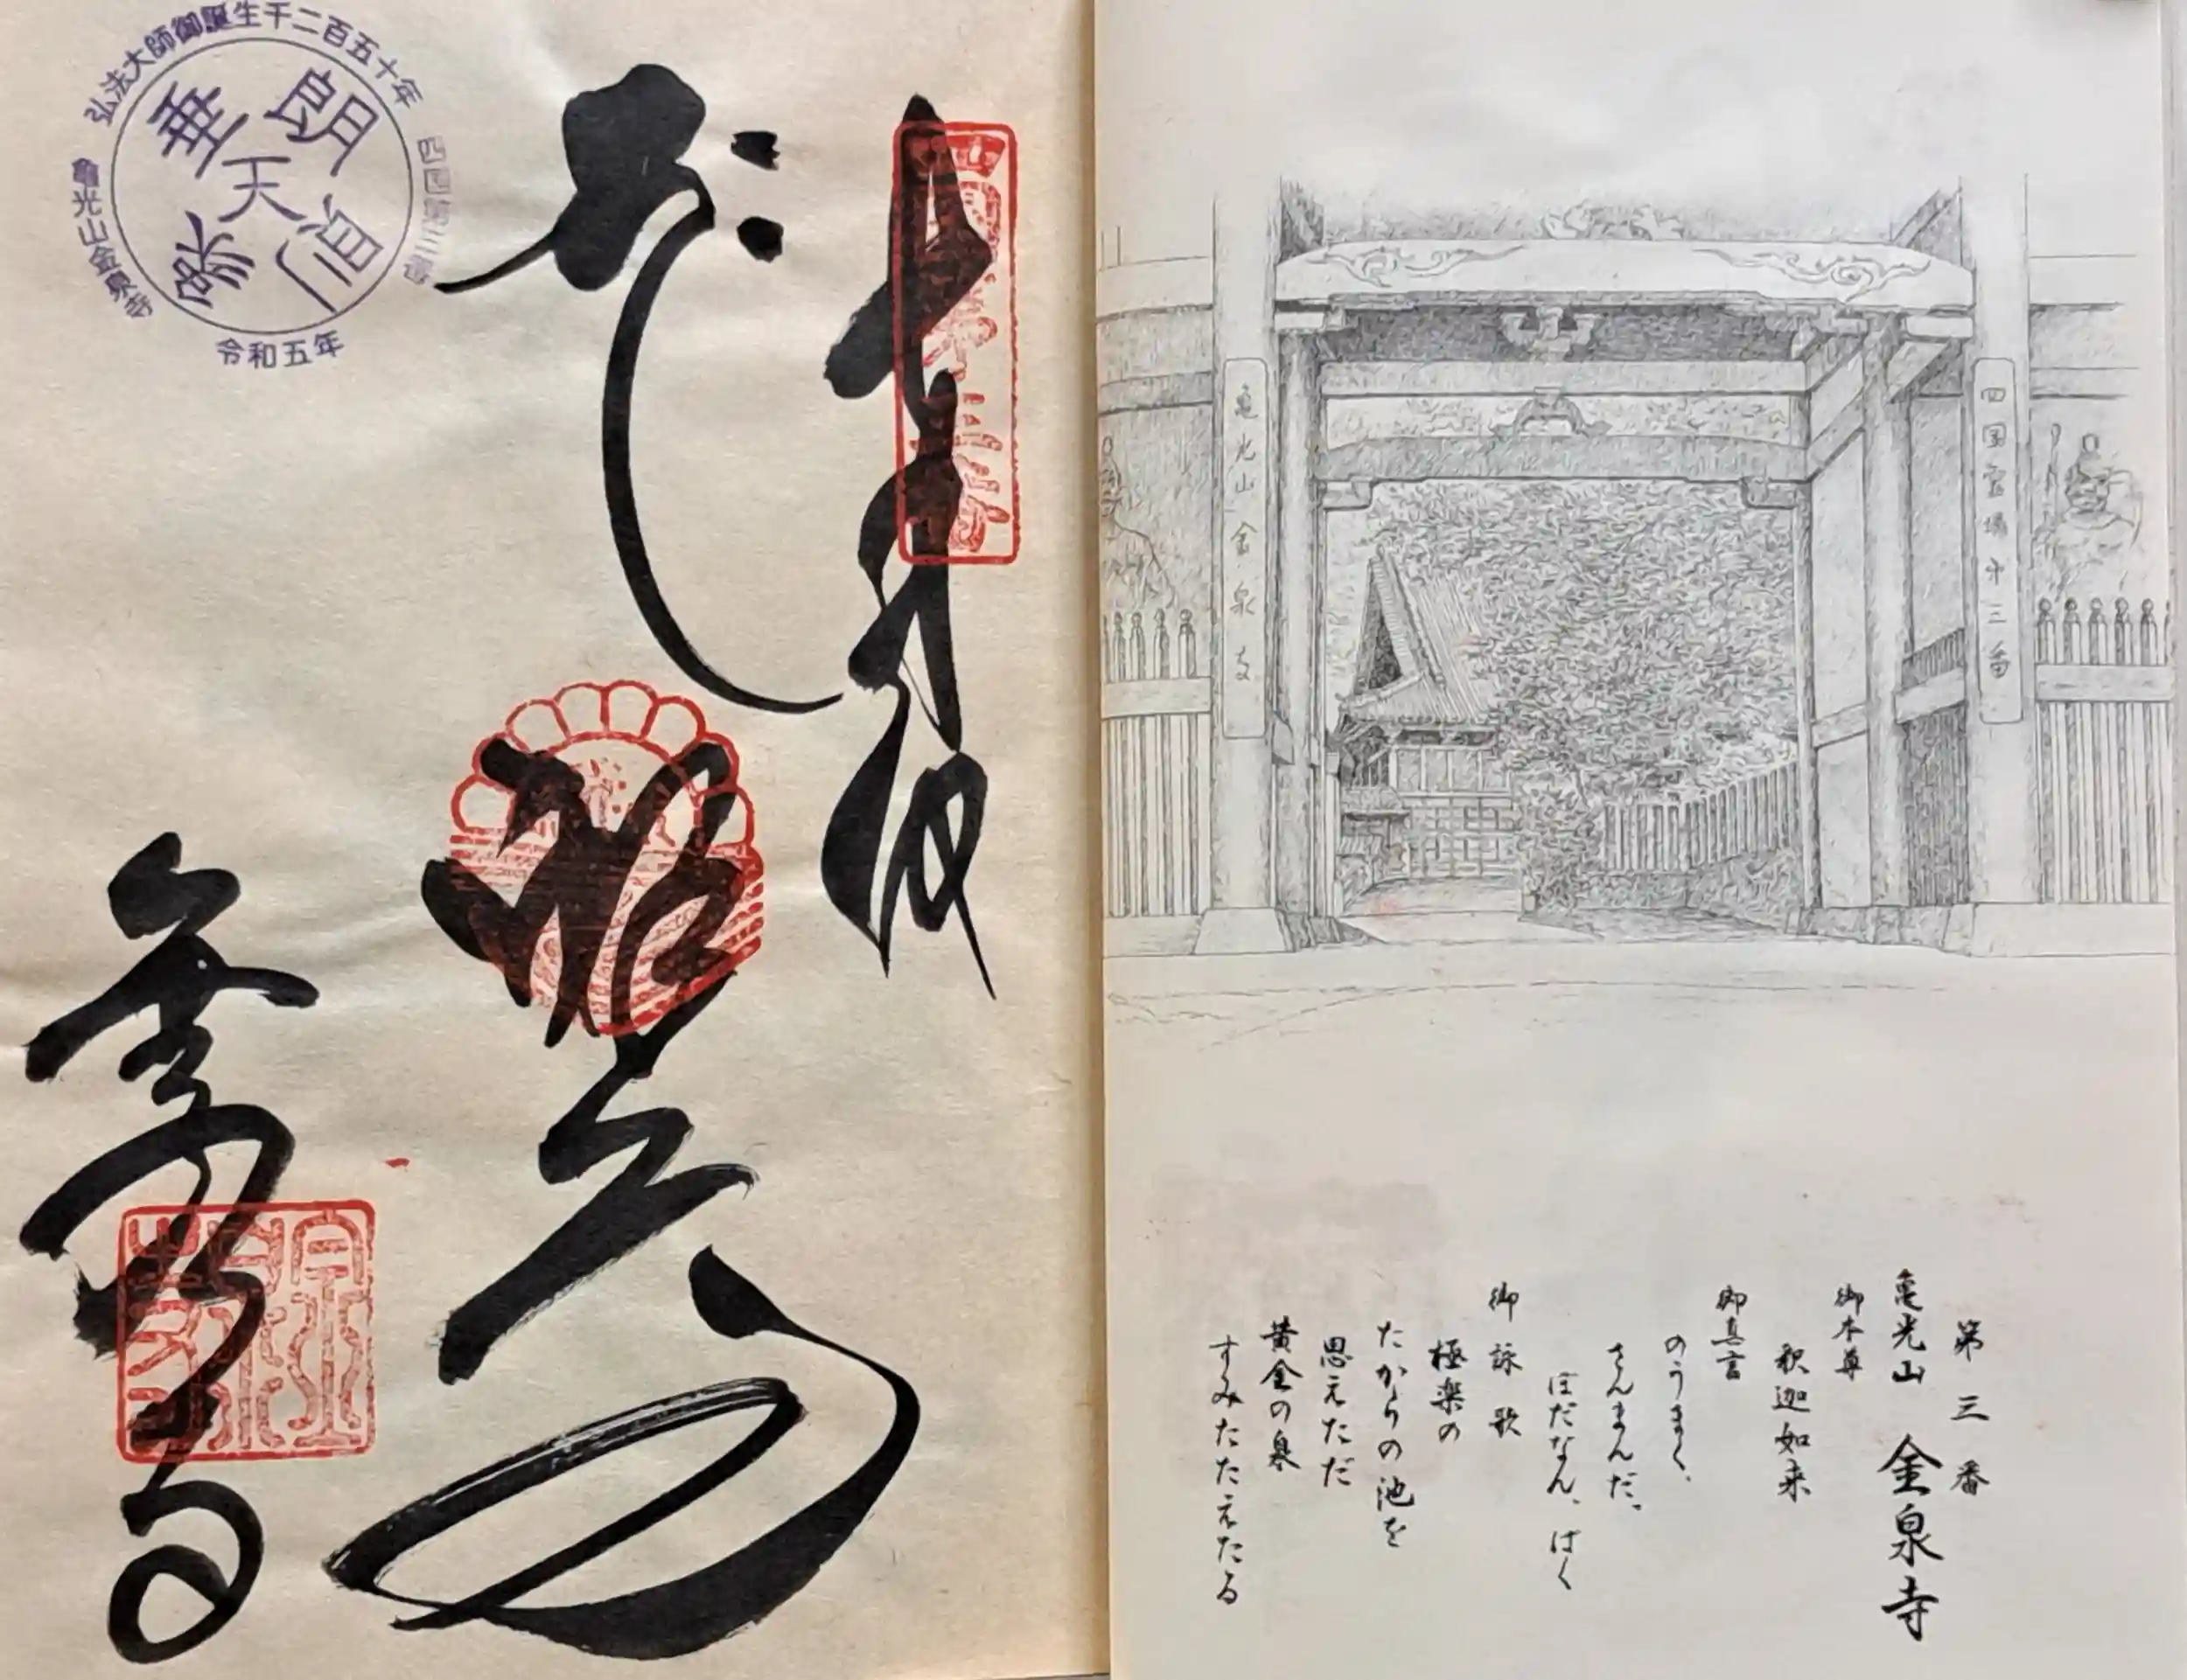 第三番
亀光山 金泉寺
御本尊
釈迦如来
御真言
のうまく、
さんまんだ、
ぼだなん、ばく
御詠歌
極楽の
たからの池を
思えただ
黄金の泉
すみたたえたる
四国霊場第三番
亀光山金泉寺
奉納
釈迦
金泉寺
弘法大師御誕生千二百五十年
四国第三番
亀光山金泉寺
令和五年
天
朗